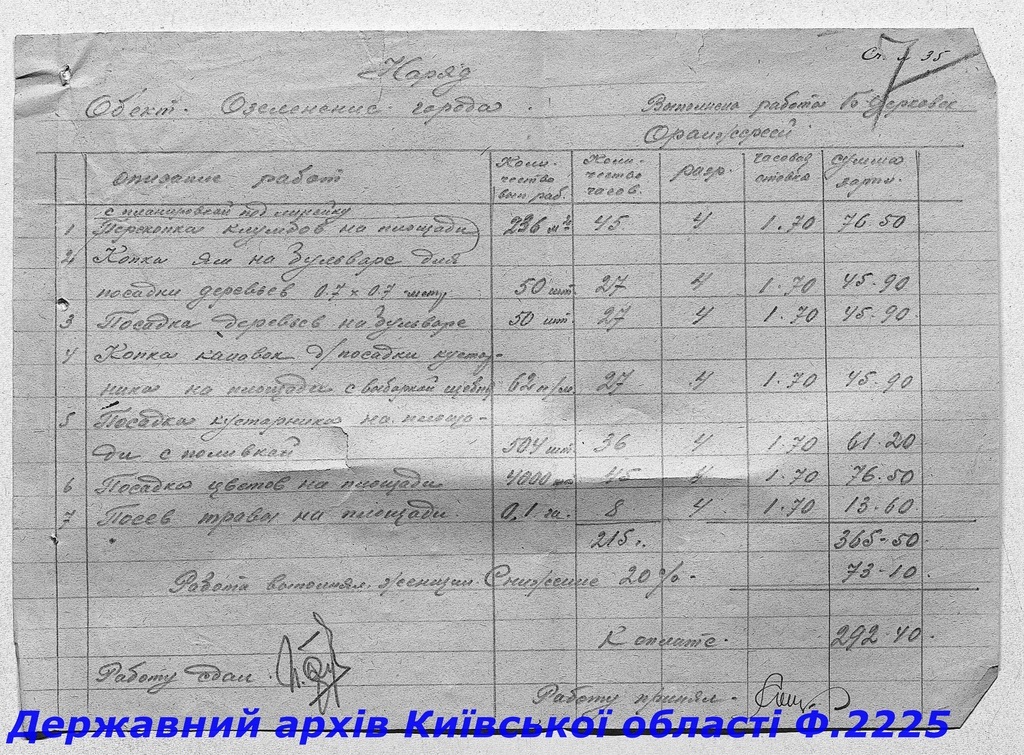 Ст. 35
7
Наряд
Обект. Озеленение города.
Выполнена работа Б Церковск
Оранжереей
описание работ
Коли-
чество
вып. раб.
Коли-
чество
часов.
разр.
часовая
ставка
сумма
зарпл.
с планировкой под линейку
1 Перекопка клумбов на площади 236 м² 45 4 1.70 76.50
2 Копка ям на бульваре для
посадки деревьев 0.7 × 0.7 50 шт. 27 4 1.70 45.90
3 Посадка деревьев на бульваре 50 шт. 27 4 1.70 45.90
4 Копка канавок д/посадки кустар-
ника на площади с выборкой щебня 62 п/м 27 4 1.70 45.90
5 Посадка кустарника на площа-
ди с поливкой 504 шт. 36 4 1.70 61.20
6 Посадка цветов на площади 4000 шт 45 4 1.70 76.50
7 Посев травы на площади. 0,1 га. 8 4 1.70 13.60
215. 365-50
Работа выполнял. женщин. Снижение 20%. 73-10
К оплате. 292-40.
Работу сдал.
Работу принял.
Державний архів Київської області Ф.2225